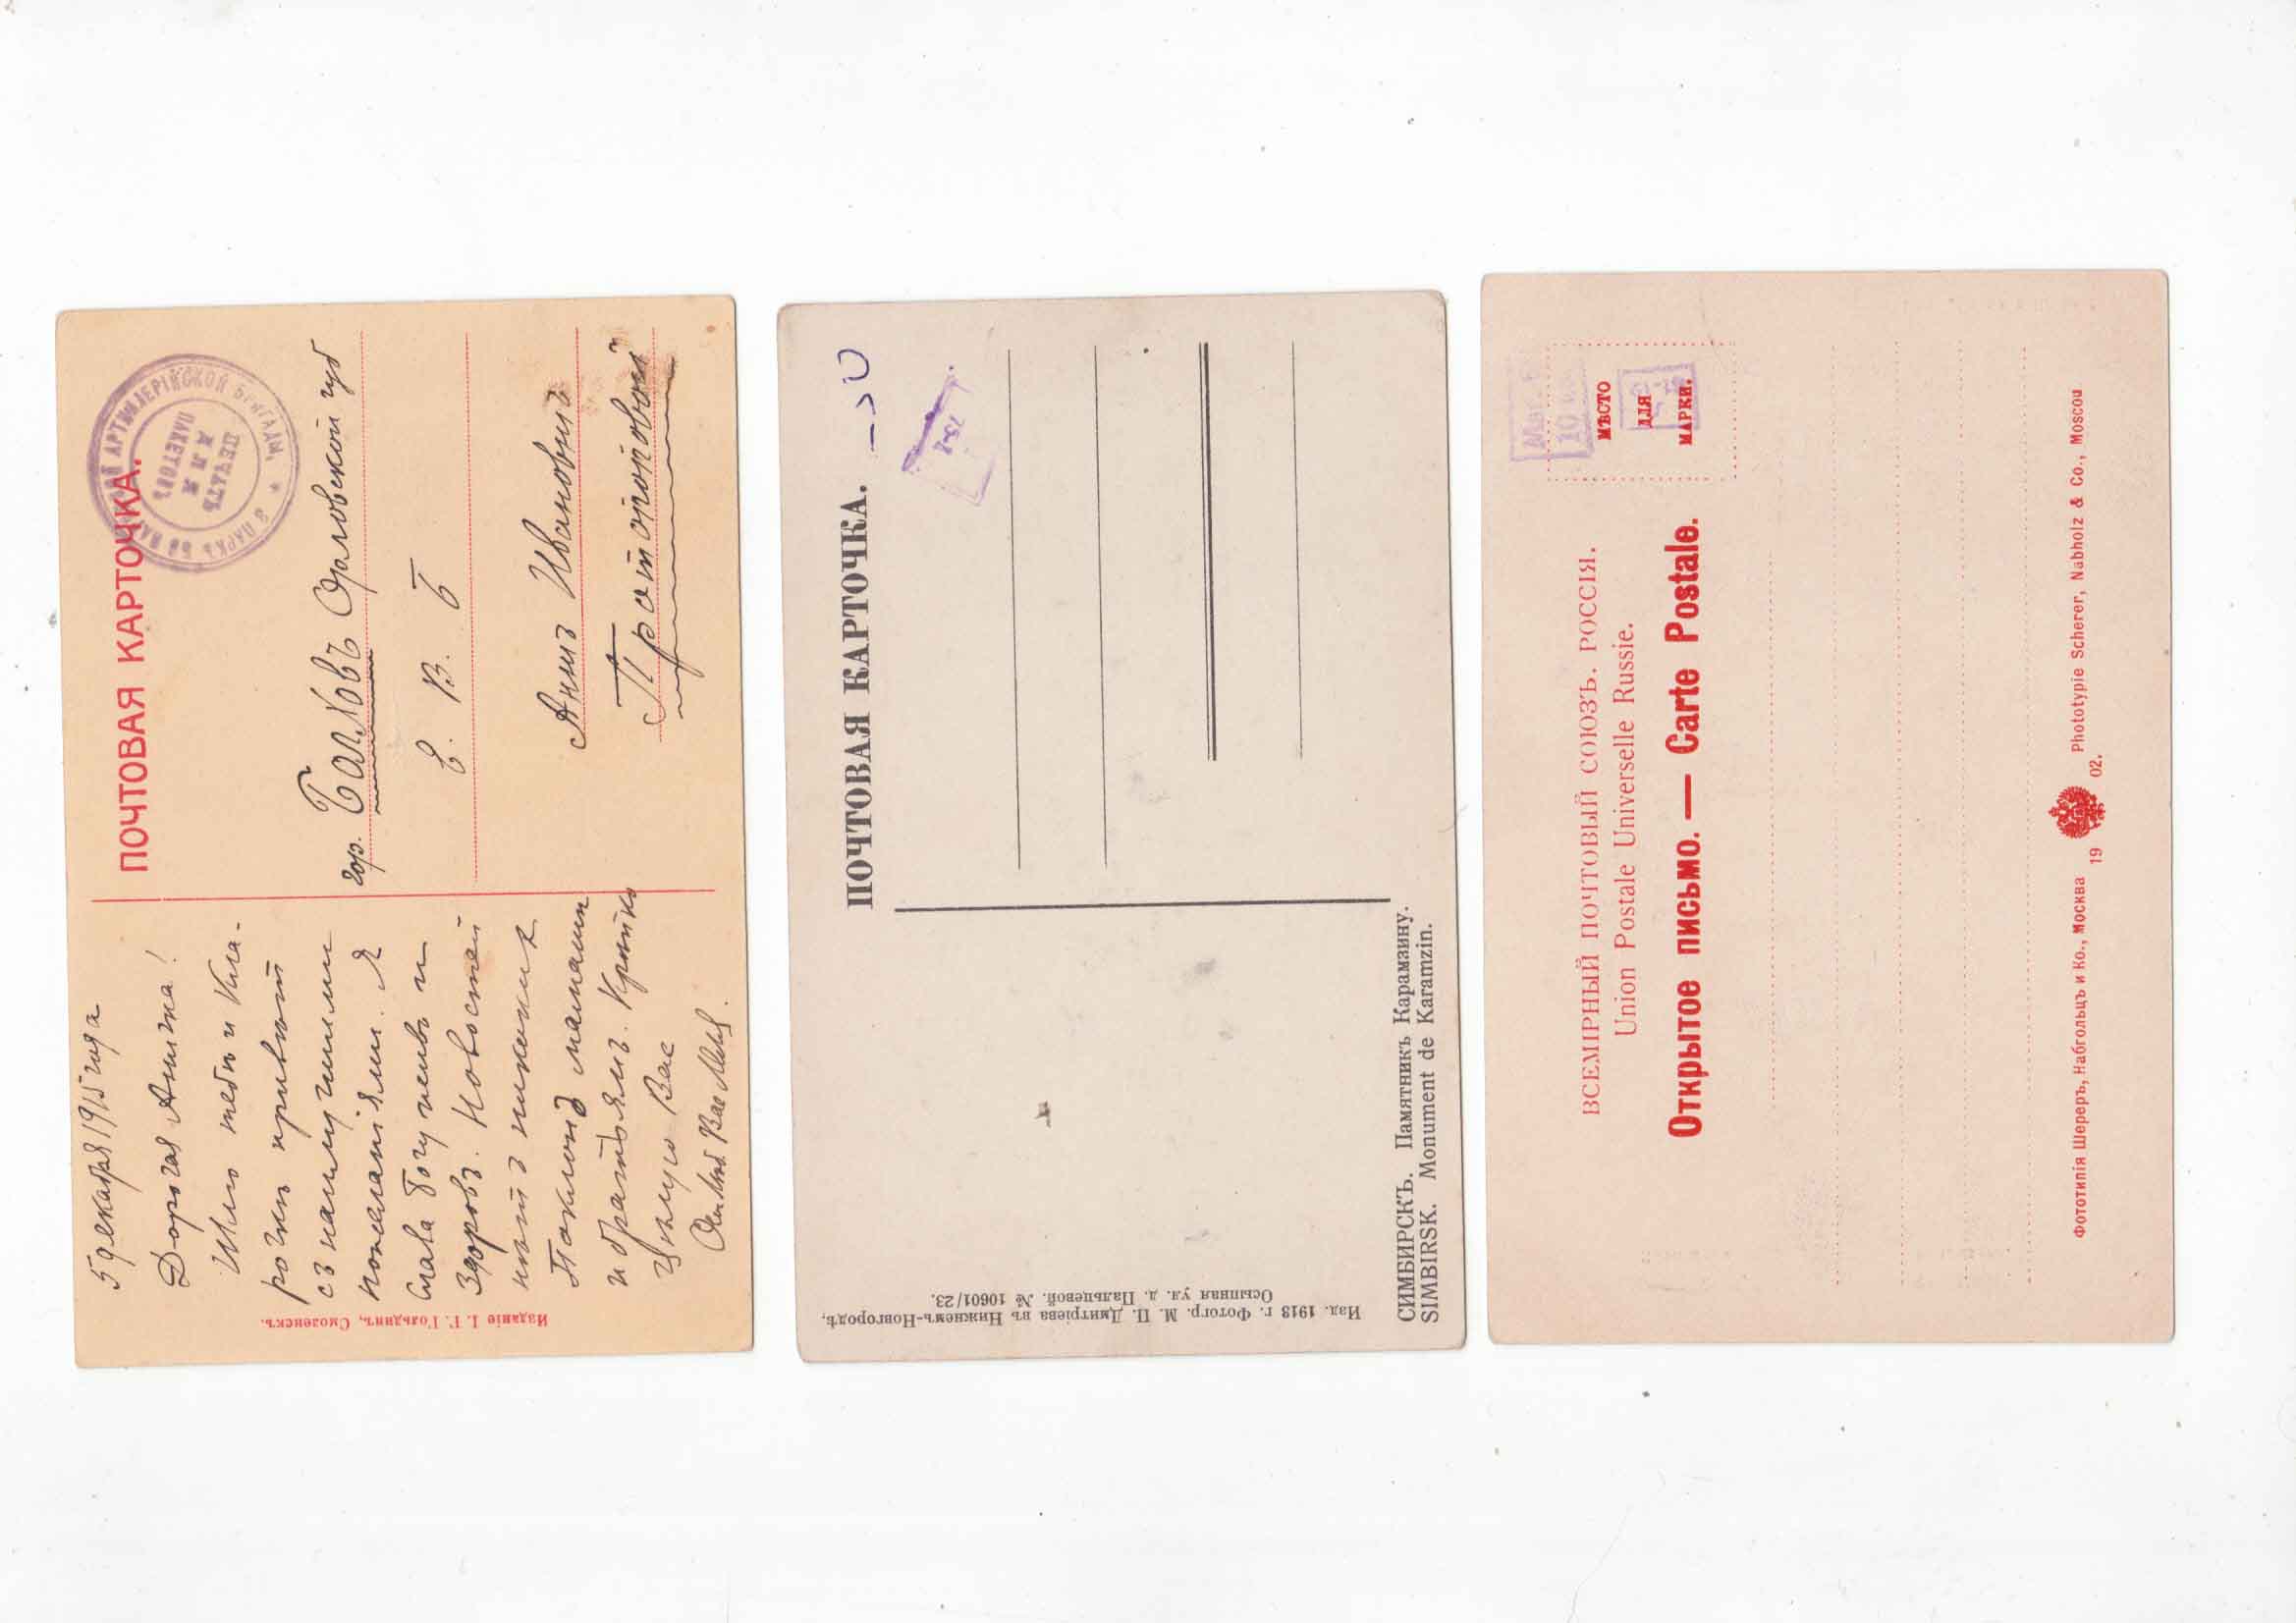 ПОЧТОВАЯ КАРТОЧКА.
3 ПАРКЪ 5Й АРТИЛЛЕРІЙСКОЙ БРИГАДЫ
ПЕЧАТЬ
ДЛЯ
ПАКЕТОВЪ
5 декабря 1915 года
Дорогая Аничка!
Шлю тебѣ и Кла-
рочкѣ привѣт
съ наилучшими
пожеланіями. Я
слава Богу живъ и
здоровъ. Новостей
нѣтъ никакихъ
Поклонъ мамаши
и братьямъ. Крѣпко
Цѣлую Вас
гор. Болховъ Орловской губ
Е. В. Б
Аннѣ Ивановнѣ
Протопоповой
Изданіе І. Г. Гольдинъ, Смоленскъ.
ПОЧТОВАЯ КАРТОЧКА.
Изд. 1913 г. Фотогр. М. П. Дмитріева въ Нижнемъ-Новгородѣ,
Осыпная ул. д. Пальцевой. № 10601/23.
СИМБИРСКЪ. Памятникъ Карамзину.
SIMBIRSK. Monument de Karamzin.
ВСЕМІРНЫЙ ПОЧТОВЫЙ СОЮЗЪ. РОССІЯ.
Union Postale Universelle Russie.
Открытое письмо. — Carte Postale.
МѢСТО
ДЛЯ
МАРКИ.
Фототипія Шереръ, Набгольцъ и Ко., Москва 19 02. Phototypie Scherer, Nabholz & Co., Moscou